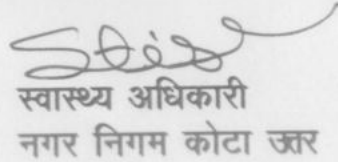 स्वास्थ्य अधिकारी
नगर निगम कोटा उत्तर